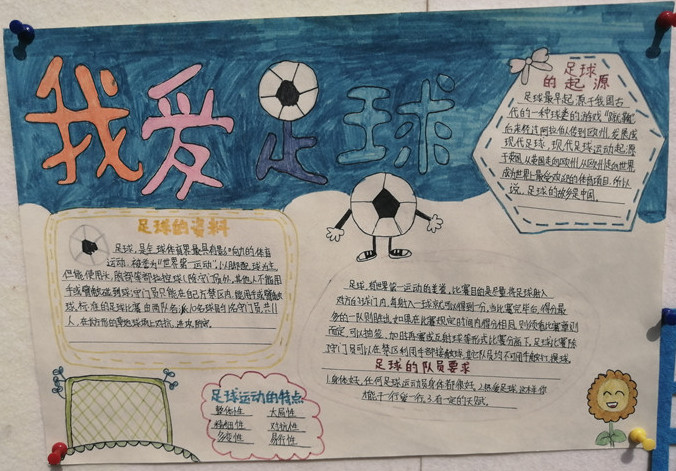 我爱足球
足球
的起源
足球最早起源于我国古
代的一种球类的游戏"蹴鞠"
后来经过阿拉伯人传到欧洲,发展成
现代足球,现代足球运动起源
于英国,从英国走向欧洲,从欧洲走向世界,
成为世界上最受欢迎的体育项目,所以
说,足球的故乡是中国。
足球的资料
足球,是全球体育界最具影响力的体育
运动,被誉为"世界第一运动",以脚踢球为主,
但能使用头,胸部等部位控球(除守门员外,其他人不能用
手或臂触碰到球,守门员只能在自己方禁区内,能用手或臂触
球,标准的足球比赛由两队各派10名球员与1名守门员,共11
人,在长方形的草地球场上对抗,进攻,防守。
足球,有世界第一运动的美誉,比赛目的是尽量将足球射入
对方的球门内,每射入一球就可以得到一分,当比赛完毕后,得分最
多的一队则胜出,如果在比赛规定时间内得分相同,则须看比赛章则
而定,可以抽签,加时再赛或互射球等形式比赛分高下,足球比赛除
守门员可以在禁区利用手部接触球,
足球的队员要求
1.身体好,任何足球运动员身体都很好,2.热爱足球,这样你
才能干一行爱一行,3.有一定的天赋。
足球运动的特点
整体性 大局性
精细性 对抗性
多变性 易行性